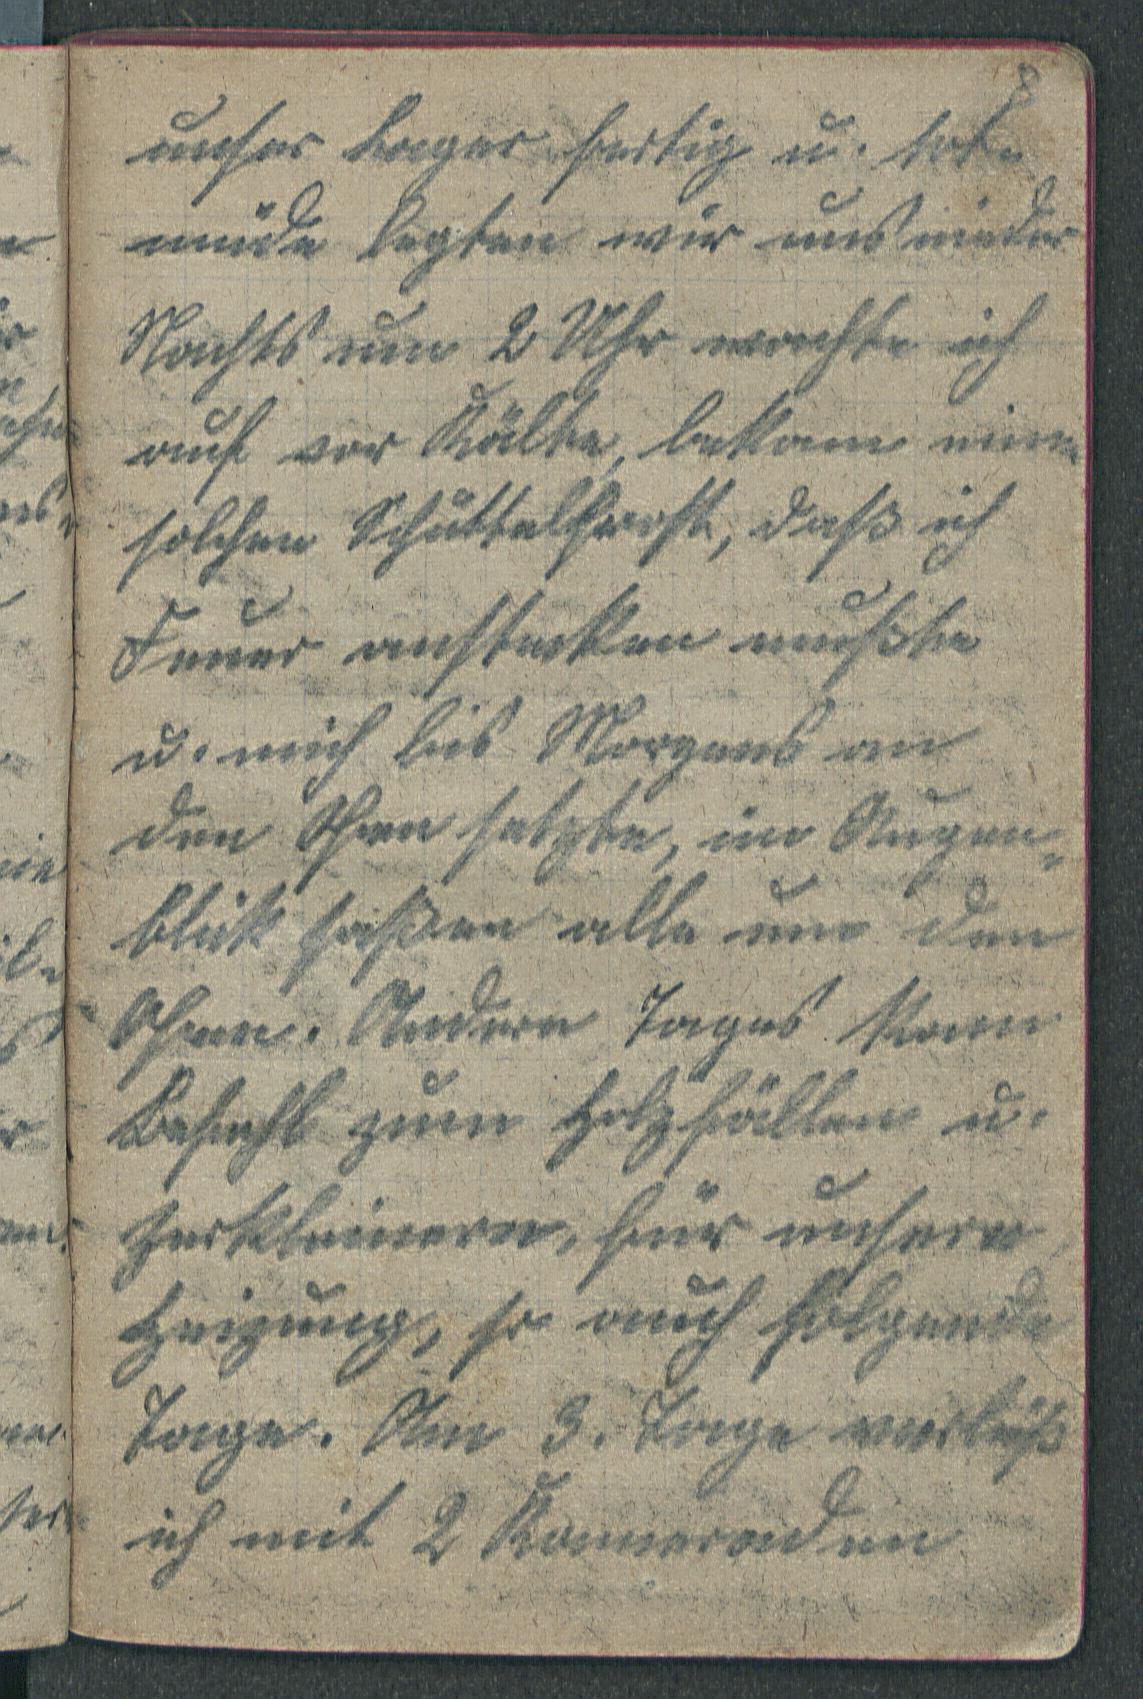 8
unser Lager fertig u. tot-
müde legten wir uns nieder
Nachts um 2 Uhr wachte ich
auf vor Kälte, bekam einen
solchen Schüttelfrost, daß ich
Feuer anstecken mußte
u. mich bis Morgens an
den Ofen setzte, im Augen-
blick saßen alle um den
Ofen. Andern Tages kam
Befehl zum Holzfällen u.
zerkleinern, für unsere
Heizung, so auch folgende
Tage. Am 3. Tage verließ
ich mit 2 Kameraden